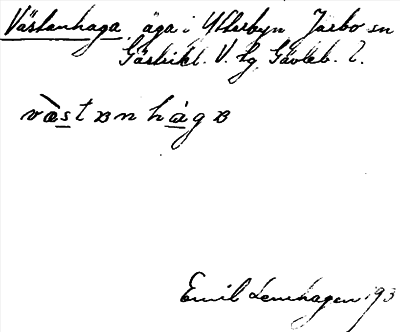 Västanhaga, äga i Ytterbyn Järbo sn
Gästrikl. V. hg Gävleb. l.
væ̀stɐnhágɐ
Emil Lenhagen 193